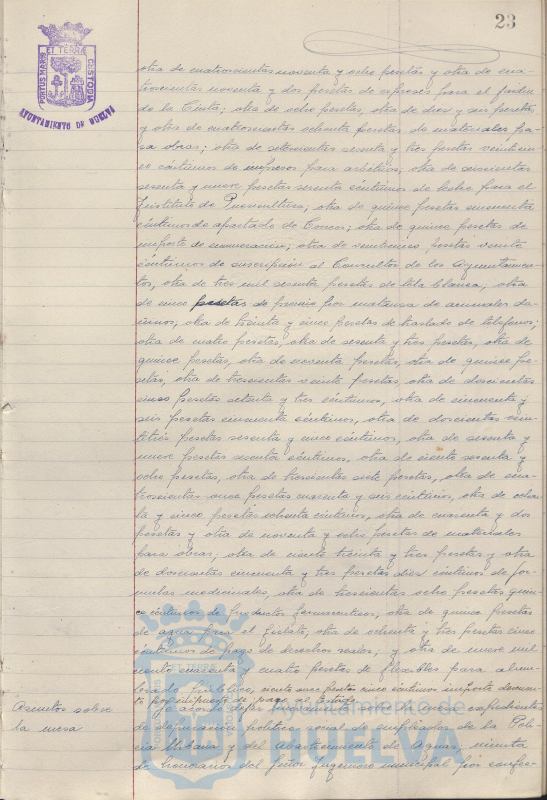 23
PORTUS MARIS ET TERRAE CUSTODIA
AYUNTAMIENTO DE HUELVA
otra de cuatrocientas noventa y ocho pesetas y otra de cua-
trocientas noventa y dos pesetas de cipreses para el jardin
de la Cinta; otra de ocho pesetas, otra de diez y seis pesetas
y otra de cuatrocientas ochenta pesetas de materiales pa-
ra obras; otra de setecientas sesenta y tres pesetas veinticin-
co céntimos de impresos para arbitrios; otra de seiscientas
sesenta y nueve pesetas sesenta céntimos de leche para el
Instituto de Puericultura; otra de quince pesetas cincuenta
céntimos de apartado de Correos; otra de quince pesetas de
importe de encuadernación; otra de veinticinco pesetas veinte
céntimos de suscripción al Consultor de los Ayuntamien-
tos, otra de tres mil sesenta pesetas de tela blanca; otra
de cinco pesetas de premio por matanza de animales da-
ñinos; otra de treinta y cinco pesetas de traslado de teléfonos;
otra de cuatro pesetas, otra de sesenta y tres pesetas, otra de
quince pesetas, otra de noventa pesetas, otra de quince pe-
setas, otra de trescientas veinte pesetas, otra de doscientas
cinco pesetas setenta y tres céntimos, otra de cincuenta y
seis pesetas cincuenta céntimos, otra de doscientas vein-
titrés pesetas sesenta y cinco céntimos, otra de sesenta y
nueve pesetas céntimos, otra de ciento sesenta y
ocho pesetas, otra de trescientas siete pesetas, otra de cua-
trocientas once pesetas cuarenta y seis céntimos, otra de ochen-
ta y cinco pesetas ochenta céntimos, otra de cuarenta y dos
pesetas y otra de noventa y seis pesetas de materiales
para obras; otra de ciento treinta y tres pesetas y otra
de doscientas cincuenta y tres pesetas diez céntimos de fór-
mulas medicinales, otra de trescientas ocho pesetas quin-
ce céntimos de productos farmaceuticos, otra de quince pesetas
de agua para el Fielato, otra de ochenta y tres pesetas cinco
céntimos de pago de derechos reales; y otra de nueve mil
ciento cuarenta y cuatro pesetas de flexibles para alum-
brado público, ciento once pesetas cinco céntimos importe
Asuntos sobre
la mesa
expedientes
de depuración político social de empleados de la Poli-
cía Urbana y del Abastecimiento de Aguas, minuta
de honorarios del Señor Ingeniero municipal por confec-
Ayuntamiento de
HUELVA